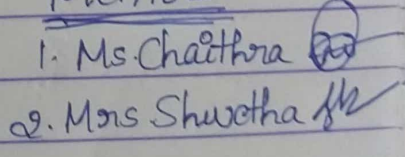 1. Ms. Chaithra
2. Mrs Shwetha